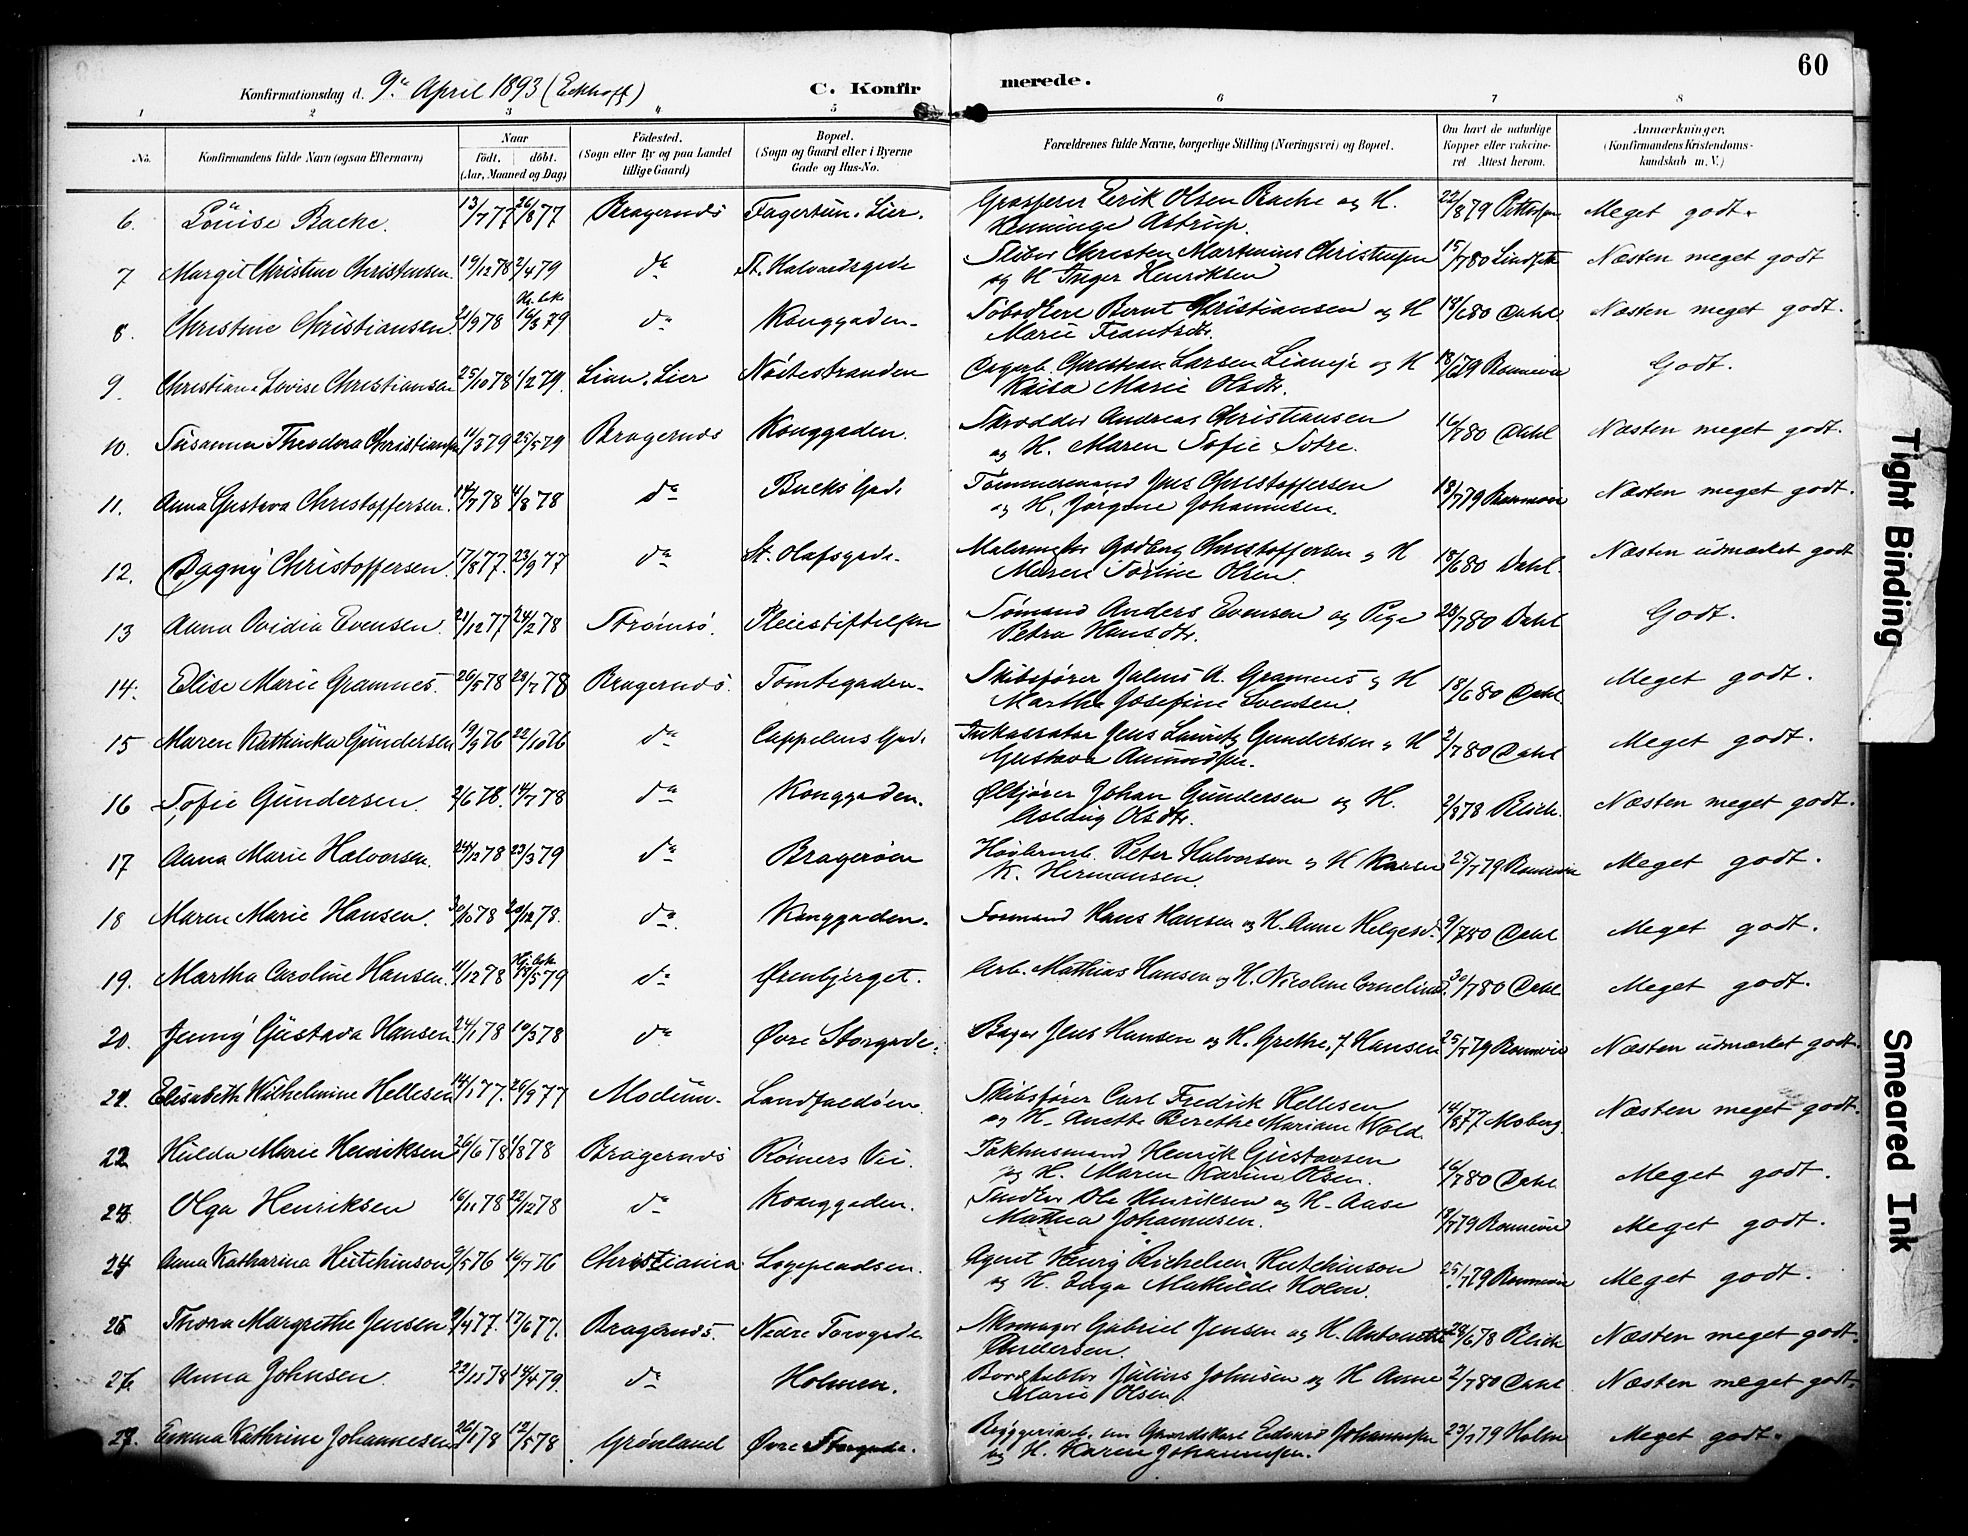 60
Konfirmationsdag d. 9de April 1893 (Eckhoff)
C. Konfirmerede.
1 2 3 4 5 6 7 8
No.
Konfirmandens fulde Navn (ogsaa Efternavn)
Naar
födt. döbt.
(Aar, Maaned og Dag)
Födested.
(Sogn eller By og paa Landet
tillige Gaard)
Bopæl.
(Sogn og Gaard eller i Byerne
Gade og Hus-No.
Forældrenes fulde Navne, borgerlige Stilling (Næringsvei) og Bopæl.
Om havt de naturlige
Kopper eller vakcine-
ret Attest herom.
Anmærkninger.
(Konfirmandens Kristendoms-
kundskab m. V.)
6. Louise Backe. 13/7 77 26/8 77 Bragernes Fagertun. Lier. Grosserer Erik Olsen Backe og H.
Henninge Astrup. 22/8 79 Meget godt.
7 Margit Christine Christensen. 19/12 78 2/4 79 do St. Halvardsgade Christen Martinius Christensen
og H Inger Henriksen 15/7 80 Næsten meget godt
8. Christine Christiansen. 2/9 78 16/3 79 do Konggaden. Bernt Christiansen og H
Marie Frantsdtr. 18/6 80 Dahl. Næsten meget godt.
9. Christiane Lovise Christiansen 25/10 78 1/2 79. Lian. Lier Nøstestranden Christian Larsen og H
Kaisa Marie Olsdtr. 18/6 79 Godt.
10. Susanna Theodora Christiansen 11/3 79 25/5 79 Bragernes Konggaden. Skrædder Andreas Christiansen
og H. Maren Sofie Sotre. 16/7 80 Dahl Næsten meget godt.
11. Anna Gustava Christoffersen. 14/7 78 4/8 78 do Bucks Gade Tømmermand Jens Christoffersen
og H. Jørgine Johannesen. 18/7 79 Næsten meget godt.
12. Dagny Christoffersen. 17/8 77. 23/9 77 do St. Olafsgade. Malermester Godberg Christoffersen og H
Maren Torine Olsen. 18/6 80 Dahl. Næsten udmærket godt
13 Anna Ovidia Evensen. 21/12 77 24/2 78 Strømsø. Pleiestiftelsen Sømand Anders Evensen og Pige
Petra Hansdtr. 28/7 80 Dahl Godt.
14. Elise Marie Gramnes. 26/5 78 28/7 78 Bragernes. Tomtegaden. Skibsfører Julius A. Gramens og H
Marthe Josefine Svensen. 18/6 80 Dahl. Meget godt.
15 Maren Kathinka Gundersen 19/9 76 22/10 76 do Cappelens Gade Inkassator Jens Lauritz Gundersen og H
Gustava Amundsen. 2/7 80 Dahl Meget godt.
16 Sofie Gundersen. 2/6 78. 14/7 78 do Konggaden. Ølkjører Johan Gundersen og H.
Aslaug Olsdtr. 2/8 78 Blich. Næsten meget godt.
17 Anna Marie Halvorsen. 24/12 78 23/3 79 do Bragerøen Høvlerarb. Peter Halvorsen og H Karen
K. Hermansen. 25/7 79 Meget godt.
18 Maren Marie Hansen. 30/10 78 26/12 78. do. Konggaden. Formand Hans Hansen og H. Anne Helgesd. 9/7 80 Dahl Meget godt.
19. Martha Caroline Hansen. 11/12 78 18/5 79 do Ørenbjerget. Arb. Mathias Hansen og H. Nicoline Corneliusd. 30/7 80 Dahl Meget godt.
20. Jenny Gustava Hansen. 24/1 78 10/3 78 do Øvre Storgade. Bager Jens Hansen og H. Grethe, f. Hansen 25/7 79 Næsten udmærket godt.
21. Elisabeth Wilhelmine Hellesen 14/1 77. 26/9 77 Modum. Landfaldøen. Skibsfører Carl Fredrik Hellesen
og H. Anette Berethe Mariane Wold. 14/8 77 Moberg. Næsten meget godt.
22 Hilda Marie Henriksen 26/6 78 1/8 78 Bragernes Rømers Vei. Pakhusmand Henrik Gustavsen
og H. Maren Karine Olsen. 16/7 80 Dahl Meget godt.
23. Olga Henriksen 16/11 78 22/12 78 do Konggaden. Ole Henriksen og H. Aase
Mathea Johannesen. 18/7 79 Meget godt.
24 Anna Katharina Hutchinson 9/5 76 16/7 76 Christiania Agent Henrig Richelsen Hutchinson
og H. Inga Mathilde Holm. 25/7 79 Meget godt.
25 Thora Margrethe Jensen 9/4 77. 17/6 77. Bragernes. Nedre Torvgade Skomager Gabriel Jensen og H. Antonette
Andersen. 28/6 78 Blich Næsten meget godt.
26. Anna Johnsen. 22/11 78 14/4 79. do Holmen. Julius Johnsen og H Anne
Marie Olsen. 2/7 80 Dahl. Næsten meget godt.
27. Emma Kathrine Johannesen 26/1 78 12/5 78 Grønland Øvre Storgade. Edvard Johannesen
og H. Karen Johannesen. 23/7 79 Holm Meget godt.
Tight Binding
Smeared Ink